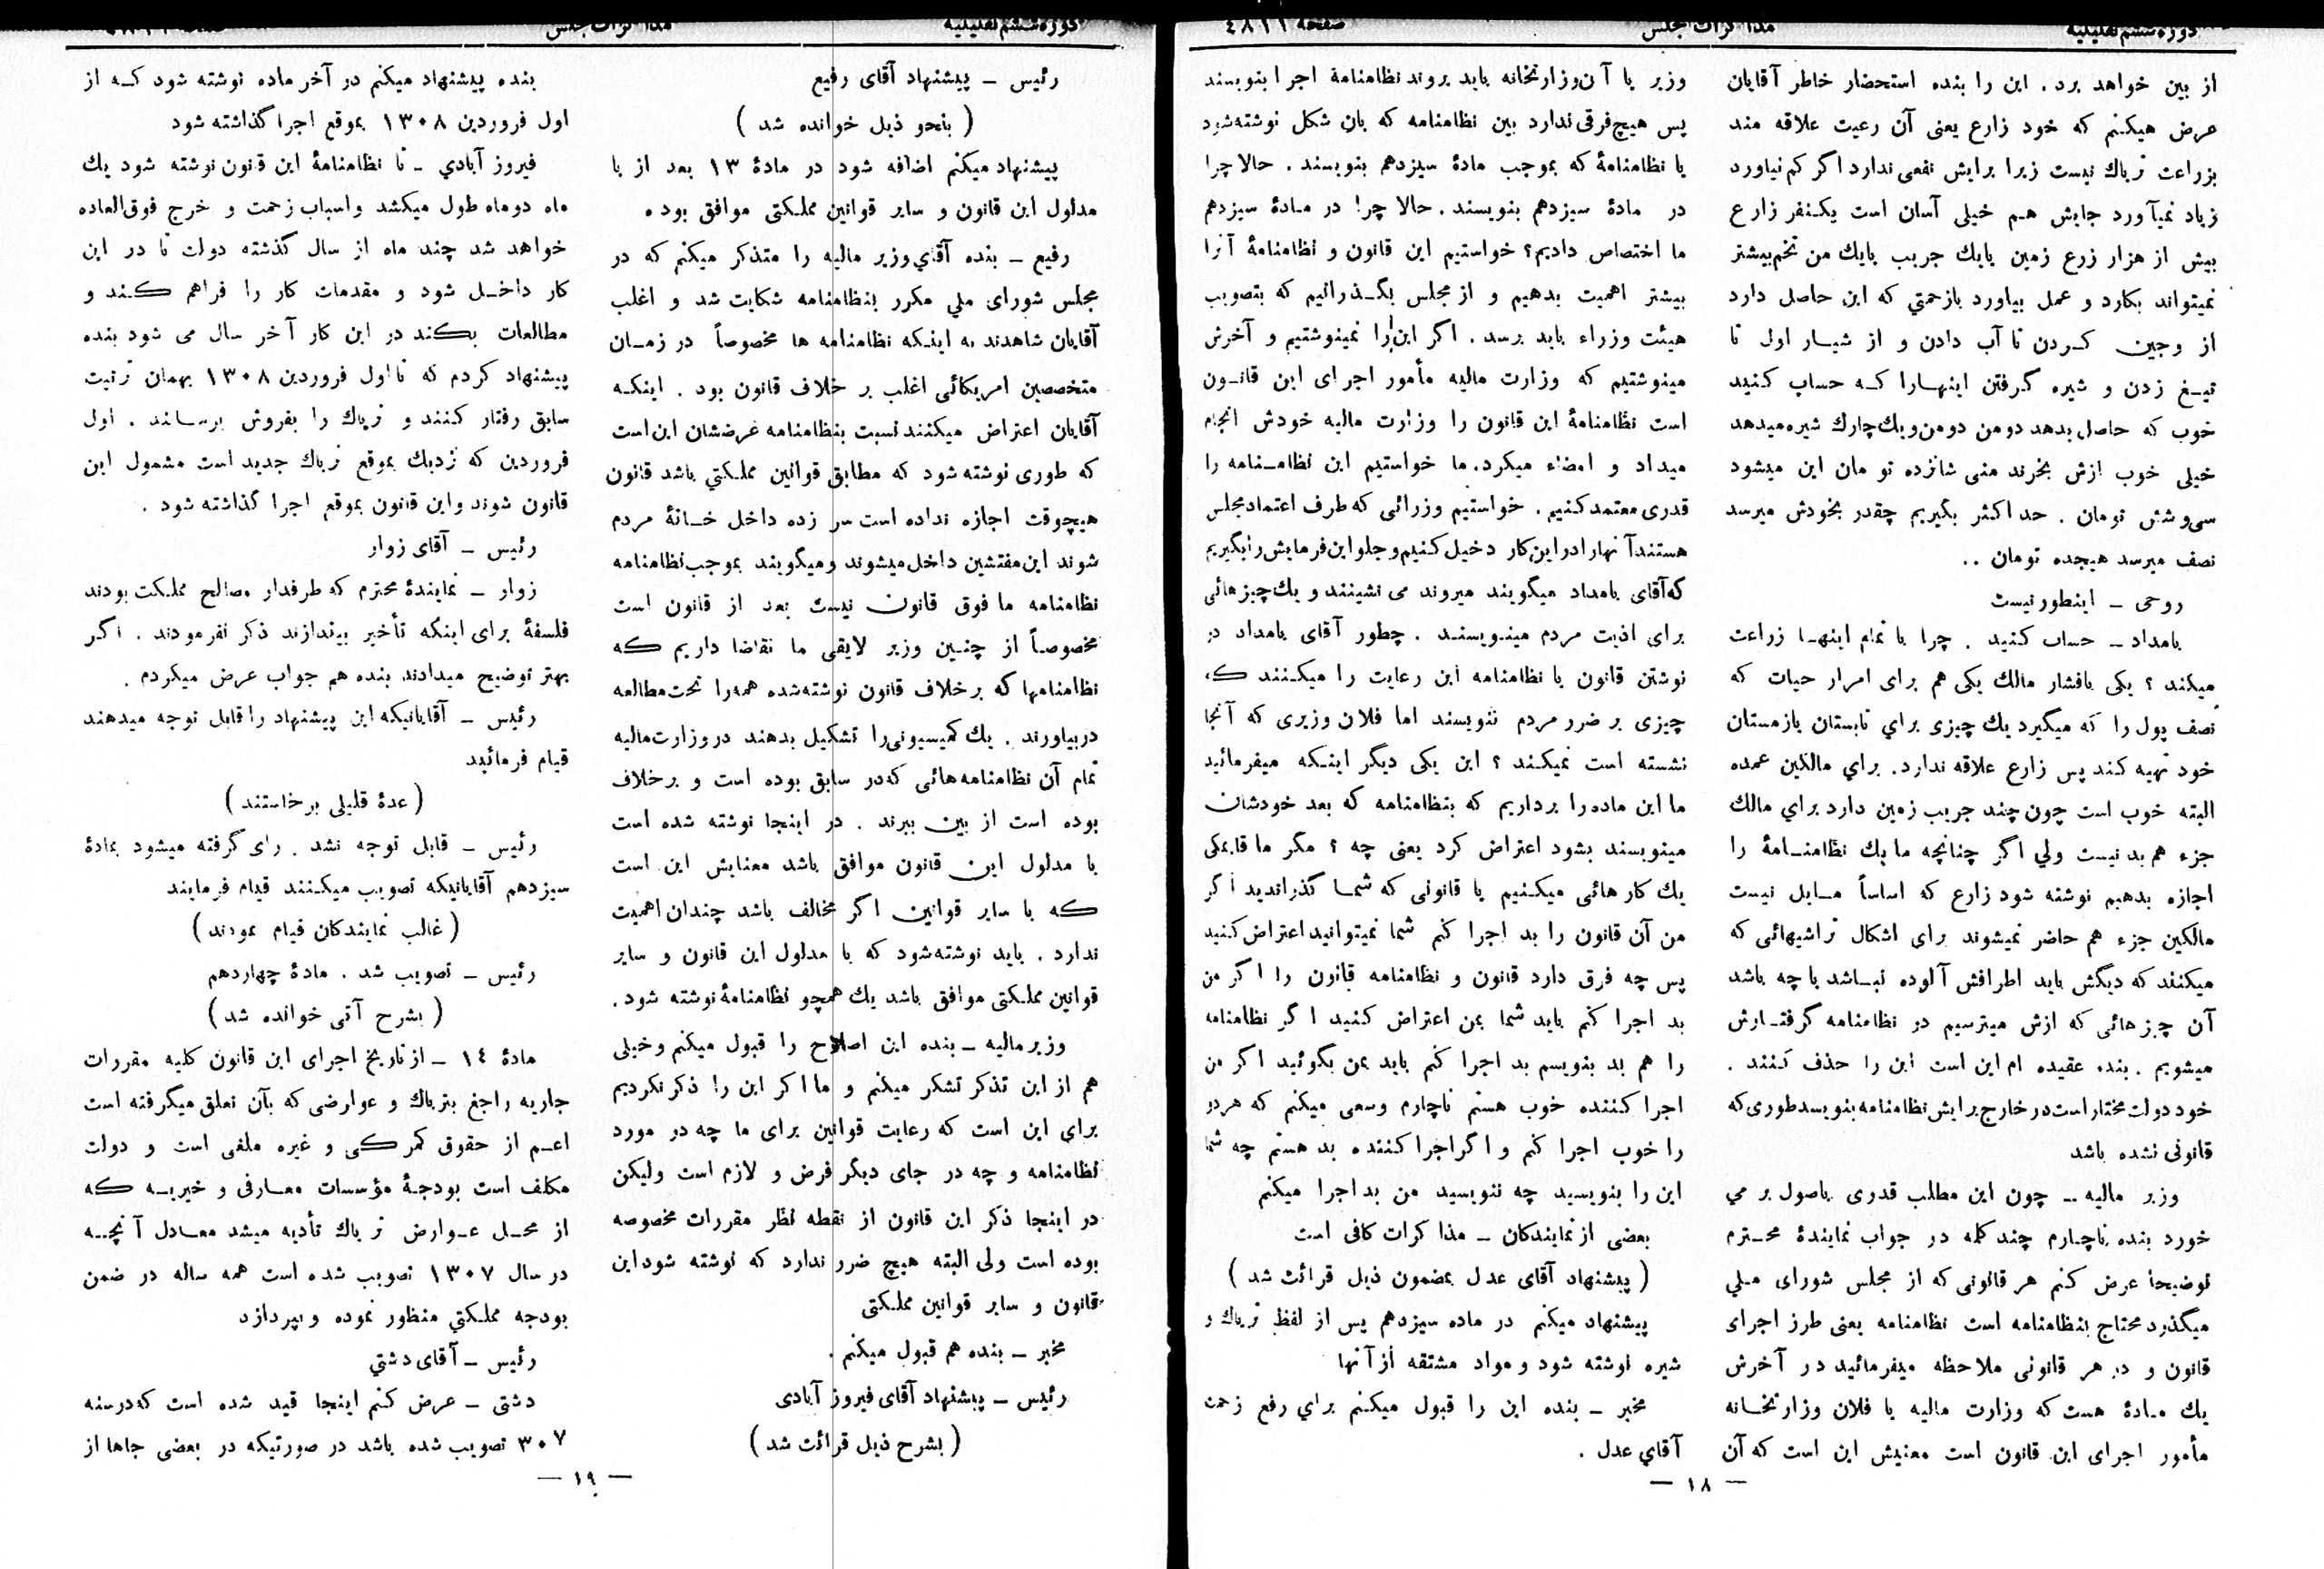 دوره ششم تقنینیه
مذاکرات مجلس
صفحه ٤٨١١
از بین خواهد برد . این را بنده استحضار خاطر آقایان
عرض میکنم که خود زارع یعنی آن رعیت علاقه مند
بزراعت تریاك نیست زیرا برایش نفعی ندارد اگر کم نیاورد
زیاد نمیآورد جایش هم خیلی آسان است یکنفر زارع
بیش از هزار زرع زمین یایك جریب یایك من تخم بیشتر
نمیتواند بکارد و عمل بیاورد بازحمتي که این حاصل دارد
از وجین کردن تا آب دادن و از شیار اول تا
تیغ زدن و شیره گرفتن اینهارا که حساب کنید
خوب که حاصل بدهد دومن دومن ویك چارك شیره میدهد
خیلی خوب ازش بخرند منی شانزده تو مان این میشود
سی وشش تومان . حد اکثر بگیریم چقدر بخودش میرسد
نصف میرسد هیجده تومان ..
روحی ـ اینطور نیست
یامداد ـ حساب کنید . چرا با تمام اینها زراعت
میکند ؟ یکی بافشار مالك یکی هم برای امرار حیات که
نصف پول را که میگیرد یك چیزی براي تابستان یازمستان
خود تهیه کند پس زارع علاقه ندارد. براي مالکین عمده
البته خوب است چون چند جریب زمین دارد براي مالك
جزء هم بد نیست ولي اگر چنانچه ما یك نظامنامۀ را
اجازه بدهیم نوشته شود زارع که اساساً مایل نیست
مالکین جزء هم حاضر نمیشوند برای اشکال تراشیهائی که
میکنند که دیگش باید اطرافش آلوده نباشد یا چه باشد
آن چیزهائی که ازش میترسیم در نظامنامه گرفتارش
میشویم . بنده عقیده ام این است این را حذف کنند .
خود دولت مختار است در خارج برایش نظامنامه بنویسد طوری که
قانونی نشده باشد
وزیر مالیه ـ چون این مطلب قدری باصول بر می
خورد بنده ناچارم چند کلمه در جواب نمایندۀ محترم
توضیحاً عرض کنم هر قانونی که از مجلس شورای ملي
میگذرد محتاج بنظامنامه است نظامنامه یعنی طرز اجرای
قانون و در هر قانونی ملاحظه میفرمائید در آخرش
یك مادۀ هست که وزارت مالیه یا فلان وزارتخانه
مأمور اجرای این قانون است معنیش این است که آن
وزیر یا آن وزارتخانه باید بروند نظامنامۀ اجرا بنویسند
پس هیچ فرقی ندارد بین نظامنامه که بان شکل نوشته شود
یا نظامنامۀ که بموجب مادۀ سیزدهم بنویسند . حالا چرا
در مادۀ سیزدهم بنویسند . حالا چرا در مادۀ سیزدهم
ما اختصاص دادیم؟ خواستیم این قانون و نظامنامۀ آنرا
بیشتر اهمیت بدهیم و از مجلس بگذرانیم که بتصویب
هیئت وزراء باید برسد . اگر این را نمینوشتیم و آخرش
مینوشتیم که وزارت مالیه مأمور اجرای این قانون
است نظامنامۀ این قانون را وزارت مالیه خودش انجام
میداد و امضاء میکرد. ما خواستیم این نظامنامه را
قدری معتمد کنیم . خواستیم وزرائی که طرف اعتماد مجلس
هستند آنهارا در این کار دخیل کنیم و جلو این فرمایش را بگیریم
که آقای یامداد میگویند میروند می نشینند و یك چیزهائی
برای اذیت مردم مینویسند . چطور آقای یامداد در
نوشتن قانون یا نظامنامه این رعایت را میکنند که
چیزی بر ضرر مردم ننویسند اما فلان وزیری که آنجا
نشسته است نمیکند ؟ این یکی دیگر اینکه میفرمائید
ما این ماده را برداریم که بنظامنامه که بعد خودشان
مینویسند بشود اعتراض کرد یعنی چه ؟ مگر ما قایمکی
یك کارهائی میکنیم یا قانونی که شما گذراندید اگر
من آن قانون را بد اجرا کنم شما نمیتوانید اعتراض کنید
پس چه فرق دارد قانون و نظامنامه قانون را اگر من
بد اجرا کنم باید شما بمن اعتراض کنید اگر نظامنامه
را هم بد بنویسم بد اجرا کنم باید بمن بگوئید اگر من
اجرا کننده خوب هستم ناچارم وسعی میکنم که هر دو
را خوب اجرا کنم و اگر اجرا کننده بد هستم چه شما
این را بنویسید چه ننویسید من بد اجرا میکنم
بعضی از نمایندگان ـ مذاکرات کافی است
( پیشنهاد آقای عدل بمضمون ذیل قرائت شد )
پیشنهاد میکنم در ماده سیزدهم پس از لفظ تریاك و
شیره نوشته شود و مواد مشتقه از آنها
مخبر ـ بنده این را قبول میکنم براي رفع زحمت
آقاي عدل .
— ١٨ —
دوره ششم تقنینیه
مذاکرات مجلس
رئیس ـ پیشنهاد آقای رفیع
( بنحو ذیل خوانده شد )
پیشنهاد میکنم اضافه شود در مادۀ ١٣ بعد از با
مدلول این قانون و سایر قوانین مملکتی موافق بوده
رفیع ـ بنده آقاي وزیر مالیه را متذکر میکنم که در
مجلس شورای ملي مکرر بنظامنامه شکایت شد و اغلب
آقایان شاهدند به اینکه نظامنامه ها مخصوصاً در زمان
متخصصین امریکائی اغلب بر خلاف قانون بود . اینکه
آقایان اعتراض میکنند نسبت بنظامنامه غرضشان این است
که طوری نوشته شود که مطابق قوانین مملکتي باشد قانون
هیچوقت اجازه نداده است سر زده داخل خانۀ مردم
شوند این مفتشین داخل میشوند ومیگویند بموجب نظامنامه
نظامنامه ما فوق قانون نیست بعد از قانون است
مخصوصاً از چنین وزیر لایقی ما تقاضا داریم که
نظامنامها که بر خلاف قانون نوشته شده همه را تحت مطالعه
دربیاورند . یك کمیسیونی را تشکیل بدهند در وزارت مالیه
تمام آن نظامنامه هائی که در سابق بوده است و بر خلاف
بوده است از بین ببرند . در اینجا نوشته شده است
با مدلول این قانون موافق باشد معنایش این است
که با سایر قوانین اگر مخالف باشد چندان اهمیت
ندارد . باید نوشته شود که با مدلول این قانون و سایر
قوانین مملکتی موافق باشد یك همچو نظامنامۀ نوشته شود.
وزیر مالیه ـ بنده این اصلاح را قبول میکنم وخیلی
هم از این تذکر تشکر میکنم و ما اگر این را ذکر نکردیم
برای این است که رعایت قوانین برای ما چه در مورد
نظامنامه و چه در جای دیگر فرض و لازم است ولیکن
در اینجا ذکر این قانون از نقطه نظر مقررات مخصوصه
بوده است ولی البته هیچ ضرر ندارد که نوشته شود این
قانون و سایر قوانین مملکتی
مخبر ـ بنده هم قبول میکنم .
رئیس ـ پیشنهاد آقای فیروز آبادی
( بشرح ذیل قرائت شد )
بنده پیشنهاد میکنم در آخر ماده نوشته شود که از
اول فروردین ١٣٠٨ بموقع اجرا گذاشته شود
فیروز آبادي ـ تا نظامنامۀ این قانون نوشته شود یك
ماه دوماه طول میکشد واسباب زحمت و خرج فوق العاده
خواهد شد چند ماه از سال گذشته دولت تا در این
کار داخل شود و مقدمات کار را فراهم کند و
مطالعات بکند در این کار آخر سال می شود بنده
پیشنهاد کردم که تا اول فروردین ١٣٠٨ بهمان ترتیب
سابق رفتار کنند و تریاك را بفروش برسانند . اول
فروردین که نزدیك بموقع تریاك جدید است مشمول این
قانون شوند واین قانون بموقع اجرا گذاشته شود .
رئیس ـ آقای زوار
زوار ـ نمایندۀ محترم که طرفدار مصالح مملکت بودند
فلسفۀ برای اینکه تأخیر بیندازند ذکر نفرمودند . اگر
بهتر توضیح میدادند بنده هم جواب عرض میکردم .
رئیس ـ آقایانیکه این پیشنهاد را قابل توجه میدهند
قیام فرمائید
( عدۀ قلیلی برخاستند )
رئیس ـ قابل توجه نشد . رای گرفته میشود بمادۀ
سیزدهم آقایانیکه تصویب میکنند قیام فرمایند
( غالب نمایندکان قیام نمودند )
رئیس ـ تصویب شد . مادۀ چهاردهم
( بشرح آتی خوانده شد )
مادۀ ١٤ ـ از تاریخ اجرای این قانون کلیه مقررات
جاریه راجع بتریاك و عوارضی که بآن تعلق میگرفته است
اعم از حقوق گمرکی و غیره ملغی است و دولت
مکلف است بودجۀ مؤسسات معارفی و خیریه که
از محل عوارض تریاك تأدیه میشد معادل آنچه
در سال ١٣٠٧ تصویب شده است همه ساله در ضمن
بودجه مملکتي منظور نموده و بپردازد
رئیس ـ آقای دشتي
دشتی ـ عرض کنم اینجا قید شده است که درسنه
٣٠٧ تصویب شده باشد در صورتیکه در بعضی جاها از
— ١٩ —